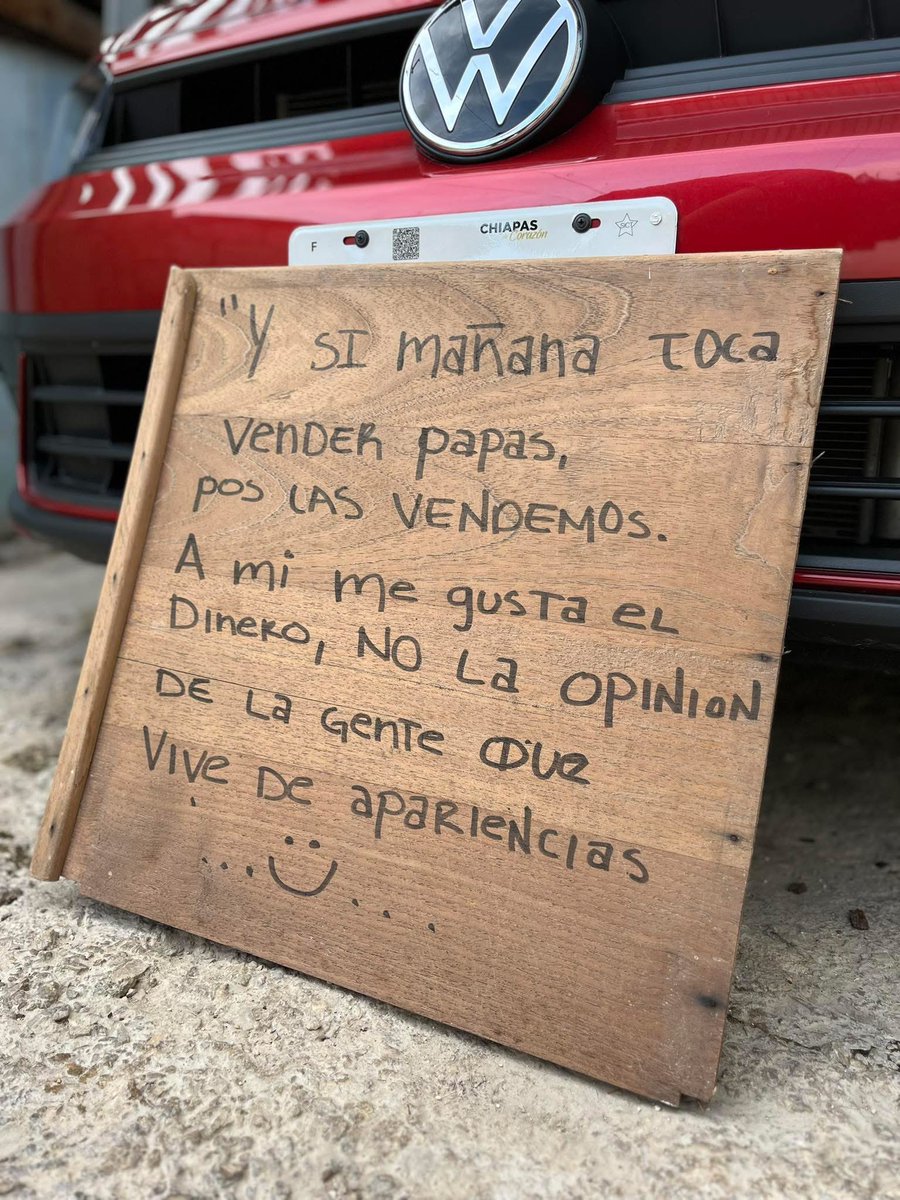 VW
F
CHIAPAS
de Corazón
SCT
"Y SI mañana TOCA
VENDER papas,
pos LAS VENDEMOS.
A mi me gusta el
Dinero, NO La OPINION
DE La Gente QUE
Vive De aparIencias